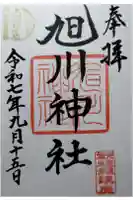 奉拝
旭川神社
令和七年九月十五日